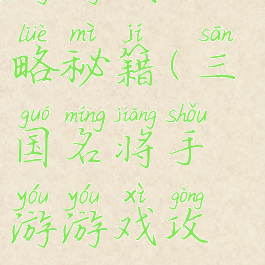 lüè mì jí sān
略秘籍(三
guó míng jiāng shǒu
国名将手
yóu yóu xì gòng
游游戏攻